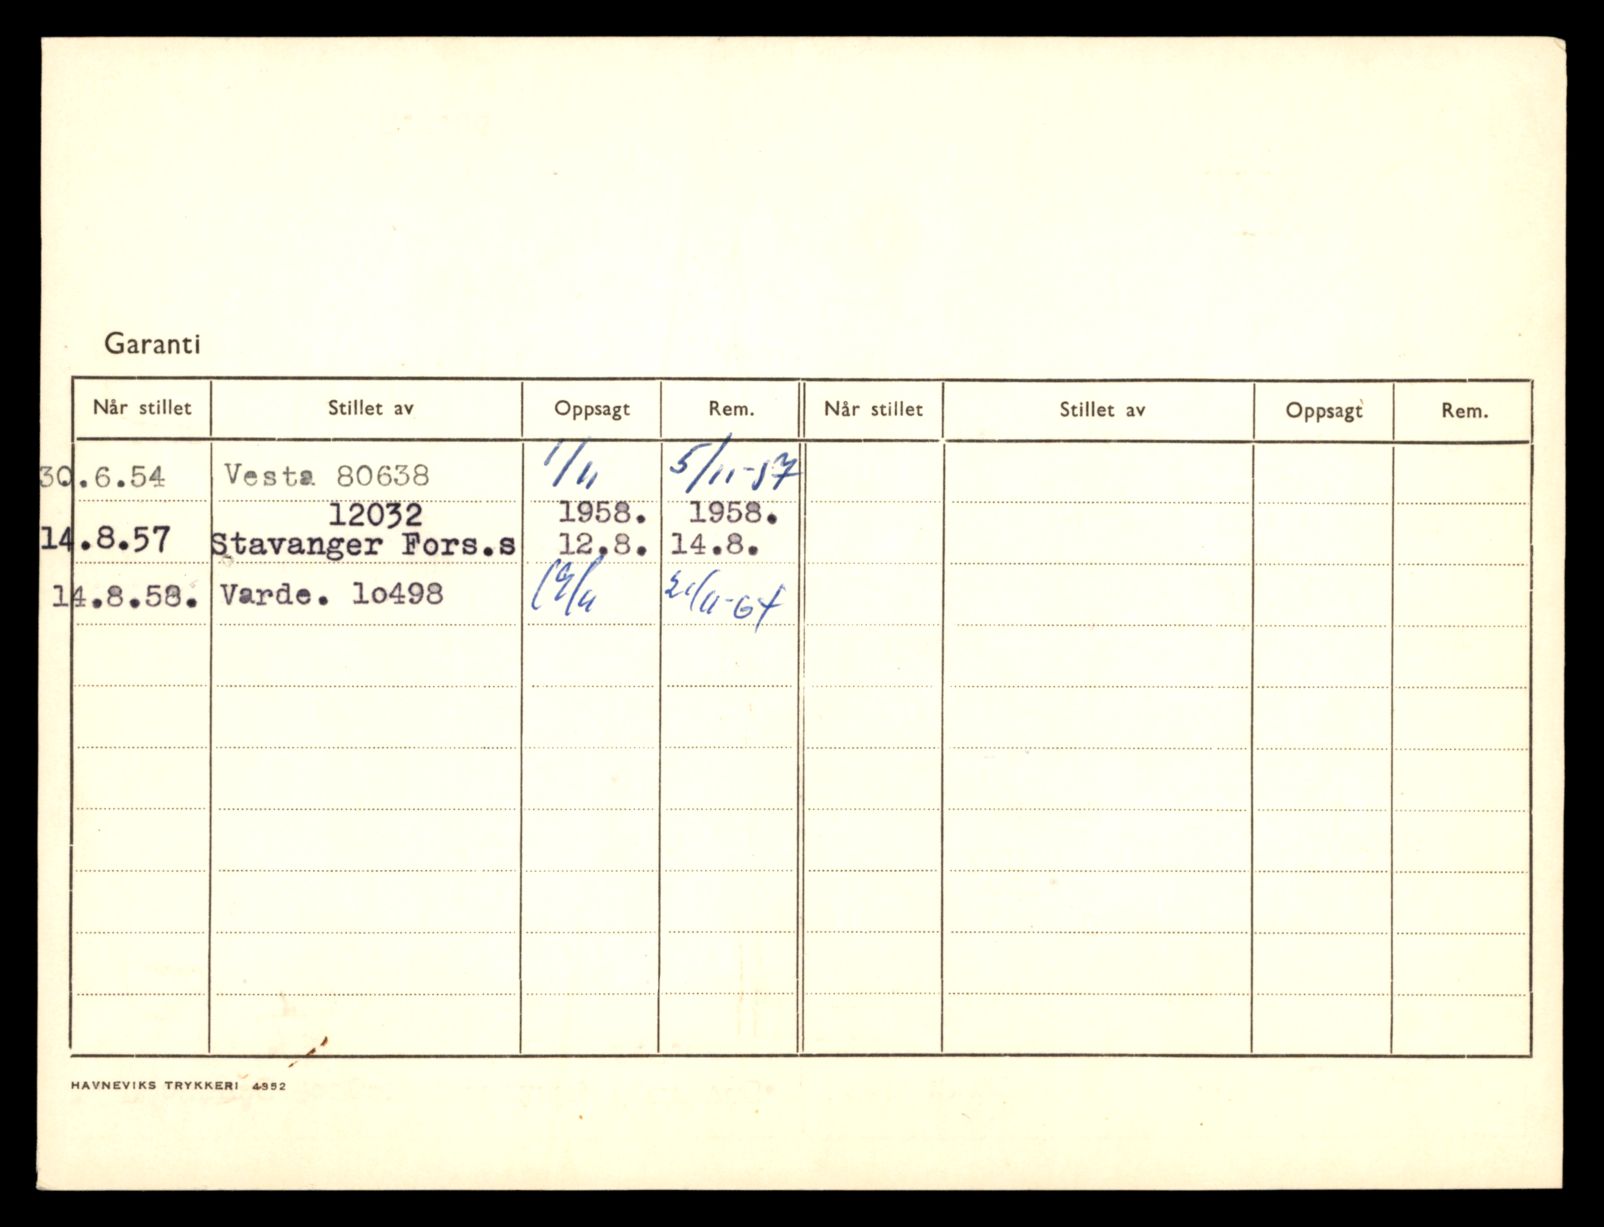 Garanti
Når stillet Stillet av Oppsagt Rem. Når stillet Stillet av Oppsagt Rem.
30.6.54 Vesta 80638 1/11 5/11-57
12032 1958. 1958.
14.8.57 Stavanger Fors.s 12.8. 14.8.
14.8.58. Varde. lo498 21/11-67
HAVNEVIKS TRYKKERI 4952